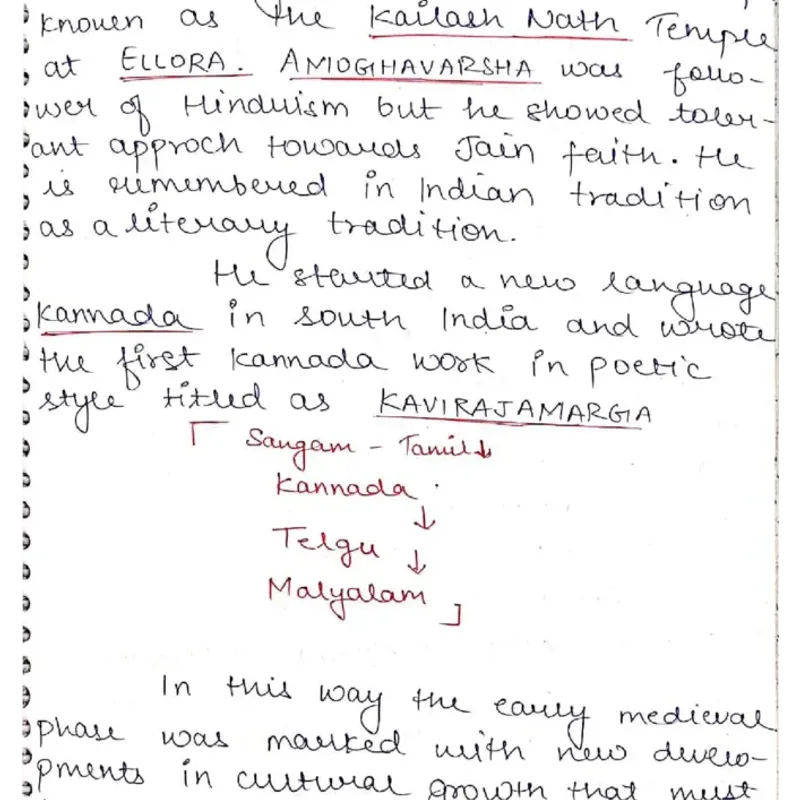 known as the Kailash Nath Temple
at ELLORA. AMOGHAVARSHA was follo-
wer of Hinduism but he showed toler-
ant approch towards Jain faith. He
is remembered in Indian tradition
as a literary tradition.
He started a new language
Kannada in south India and wrote
the first Kannada work in poetic
style titled as KAVIRAJAMARGA
[ Sangam - Tamil ↓
Kannada
↓
Telgu ↓
Malyalam ]
In this way the early medieval
phase was marked with new develo-
pments in cultural growth that must